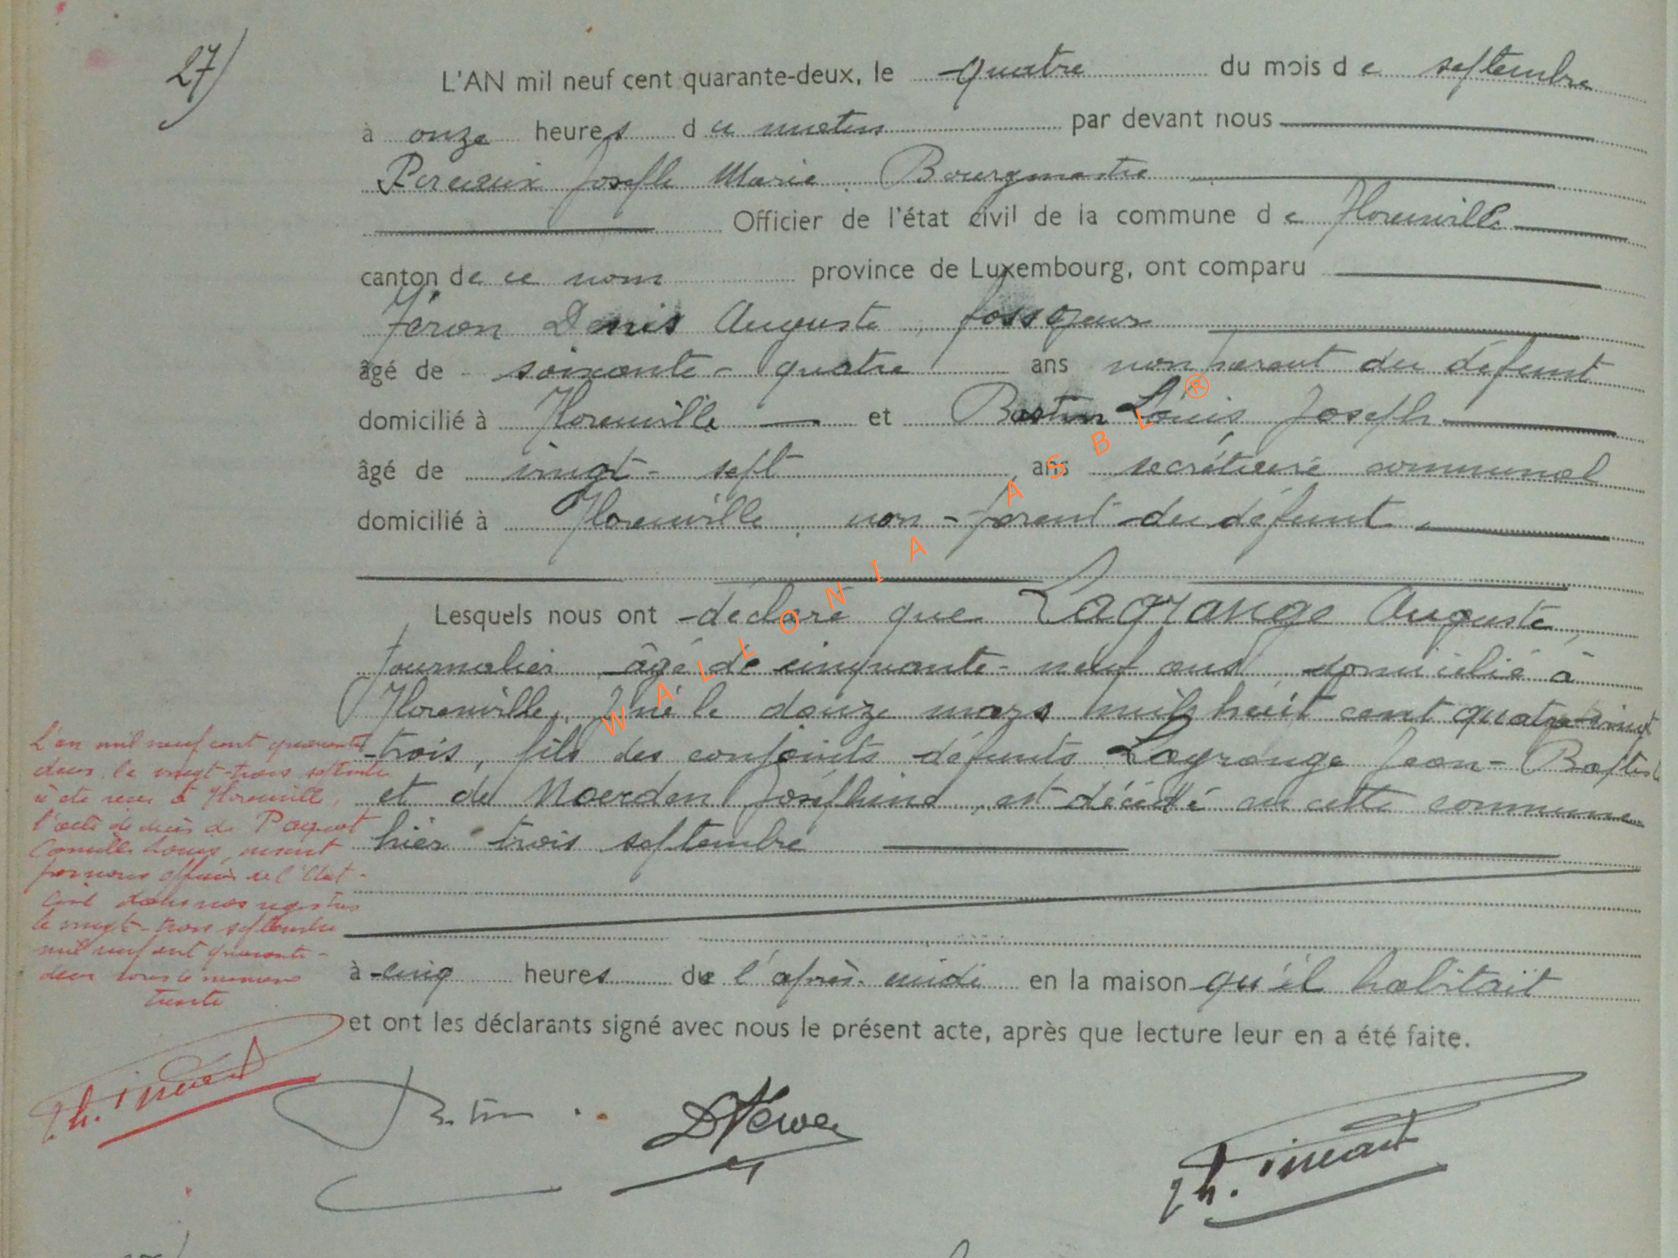 27)
L'AN mil neuf cent quarante-deux, le quatre du mois de septembre
à onze heures du matin par devant nous
Joseph Marie, Bourgmestre
Officier de l'état civil de la commune de Florenville
canton de ce nom province de Luxembourg, ont comparu
Féron Denis Auguste, fossoyeur
âgé de soixante-quatre ans non parent du défunt
domicilié à Florenville et Bastin Louis Joseph
âgé de vingt-sept ans secrétaire communal
domicilié à Florenville, non-parent du défunt
Lesquels nous ont déclaré que Lagrange Auguste,
journalier, âgé de cinquante-neuf ans, domicilié à
Florenville, né le douze mars mil huit cent quatre-vingt
-trois, fils des conjoints défunts Lagrange Jean-Baptiste
et de Noerden Joséphine, est décédé en cette commune
hier trois septembre
à cinq heures de l'après-midi en la maison qu'il habitait
et ont les déclarants signé avec nous le présent acte, après que lecture leur en a été faite.
L'an mil neuf cent quarante
deux, le vingt-trois septembre
a été reçu à Florenville,
l'acte de décès de Paquet
Camille Louis, inscrit
par nous officier de l'Etat-
Civil dans nos registres
le vingt-trois septembre
mil neuf cent quarante-
deux sous le numéro
trente
WALLONIA ASBL®